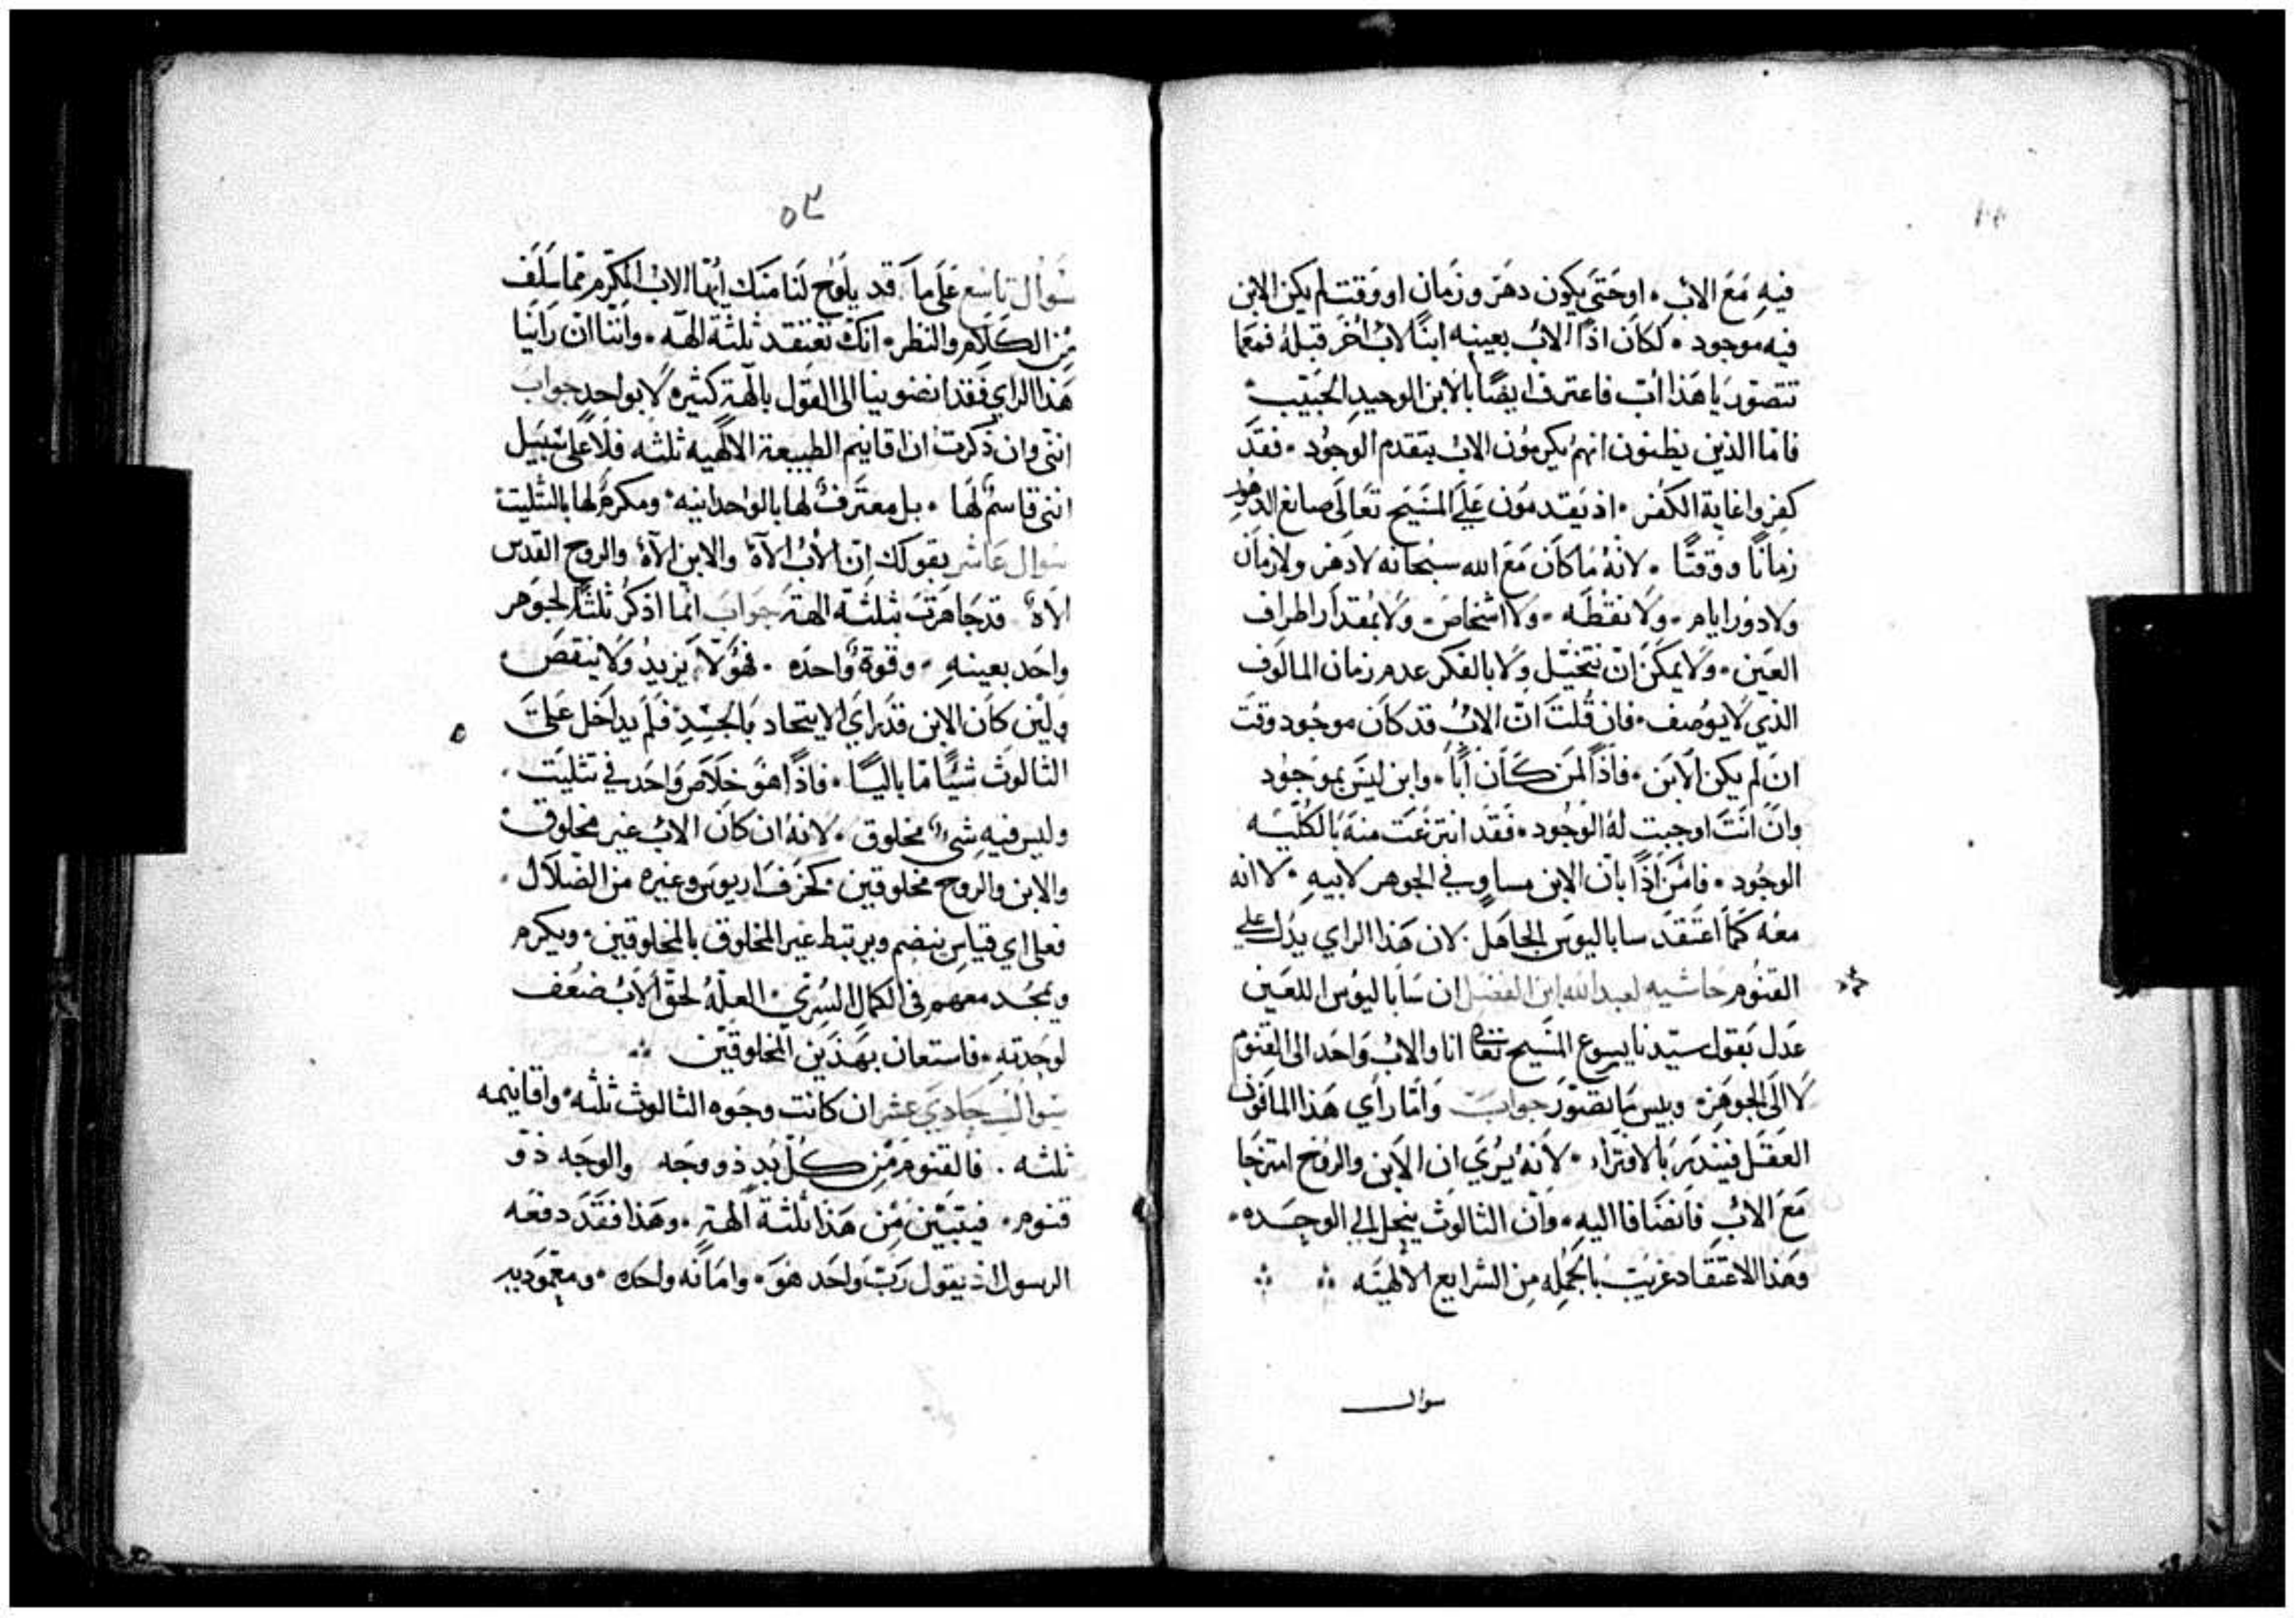 فيه مَعَ الابِ ۰ اوحَتَي يكون دهَر وزَمان او وَقت لم يكن الابن
فيه موجود ۰ لكان اذًا الابُ بعينه ابنًا لابٍ اخَر قبلهُ فمعَما
تتصَوّر يا هَذا اب فاعترف ايضًا بالابن الوحيد الحَبيب ۰
فامّا الذين يظنون انهم يكرمُون الاب بتقدم الوجُود ۰ فقدَ
كفروا غاية الكفر ۰ اذ يَقدمَون عَلَي المَسَيح تعَالَي صانع الدهُور
زمانًا ووقتًا ۰ لانهُ مَا كانَ مَعَ الله سبحَانه لا دَهر ولا زمان
ولا دوَر ايام ۰ ولا نقطه ۰ ولا اشخاص ۰ ولا بمقدار اطراف
العَين ۰ ولا يمكَن ان نتخيّل ولا بالفكر عدم زمان المالوَف
الذي لا يوُصف ۰ فان قُلتَ انّ الابُ قد كان موجُود وقتَ
ان لم يكن الابَن ۰ فاذًا لمَن كَان ابًا ۰ وابن ليَس بموَجوُد
وانّ انتَ اوجبت لهُ الوجُود ۰ فقَد انتزعَت منهَ بالكليّه
الوجُود ۰ فامَن اذًا بان الابن مساوٍ في الجوهر لابيهِ ۰ لا انه
معهُ كمَا اعتَقدَ ساباليوسَ الجاهَل ۰ لان هَذا الراي يدُل علي
القنُوم حَاشيه لعبد الله ابن الفضَل ان سَاباليوُس اللعَين
عَدل بَقول سيّدنا يسوع المَسيح تعَالي انا والابُ وَاحَد الي القنُوم
لا الَي الجوهَر ۰ وبيس مَا تصَوّر جوابَ وَامّا رَأي هَذا المافون
العقَل فينَدبَر بالافترَاء ۰ لانهُ يُرَي ان الابَن والروُح امتزجَا
مَعَ الابُ فانضَافا اليهِ ۰ وَان الثالوثَ ينحَل الي الوحَده ۰
وهَذا الاعتقاد غريَب بالجَمله مِن الشرايع الالهيَه
سوال
٥٢
سَوال تاسَع عَلَي مَا قد يلوَح لنَا منَك ايُها الابُ المكرَم ممّا سَلَف
مِن الكَلامَ والنظر ۰ انكَ تعتقد ثلثة الهّه ۰ وانّنا ان رَاينا
هَذا الراي فقَد انضوينا الي القوَل بالهَة كثيره لا بواحدٍ جوابَ
انني وان ذكرت ان اقانيم الطبيعة الالهيه ثلثه فلا علي سَبيل
انني قاسمٌ لهَا ۰ بل معترَفٌ لها بالوحدانيه ۰ ومكرمٌ لها بالتثليت
سَوال عَاشر بقولك انّ الاب الاهٌ والابن الاهٌ والروح القدس
الاهٌ قد جَاهَرت بثلثة الهَة جَوابَ انمَا اذكُر ثلثَة لجوَهر
واحَد بعينهِ ۰ وقوةٌ واحدَه ۰ فهُوَ لا يزيدُ ولا ينقصَ
ولَين كان الابن قدَ راَي الايتحاد بالجَسَدِ فلَم يداخَل عَلَيَ
الثالوثَ شيًّا مَا باليًا ۰ فاذًا هَوَ خلاصَ وَاحَد في تثليَت ۰
وليس فيهِ شيٌ مخلوق ۰ لانهُ ان كان الابُ غير مخلوقٌ
والابن والروح مخلوقين كخرَف اريوس وغيره من الضَلاَل ۰
فعلي اي قياسٍ ينضم ويرتبط غير المخلوق بالمخلوقين ۰ ويكرم
ويمجُد معهم في الكمال السُري ۰ العلهُ لحقَ الابُ ضَعف
لوحَدته ۰ فاستعان بهَذَين المخلوقيَن
سَوالَ حَادي عَشر ان كانت وجَوه الثالوث ثلثه ۰ واقانيمه
ثلثه ۰ فالقنوم مَن كُل بُد ذو وَجَه والوجَه ذو
قنوم ۰ فيتبَيّن مَن هَذا ثلثة الهة ۰ وهَذا فقَدَ دفعَه
الرسول اذ يقول رَبٌ وَاحَد هوَ ۰ وامَانَه واحَده ۰ ومعموَديه